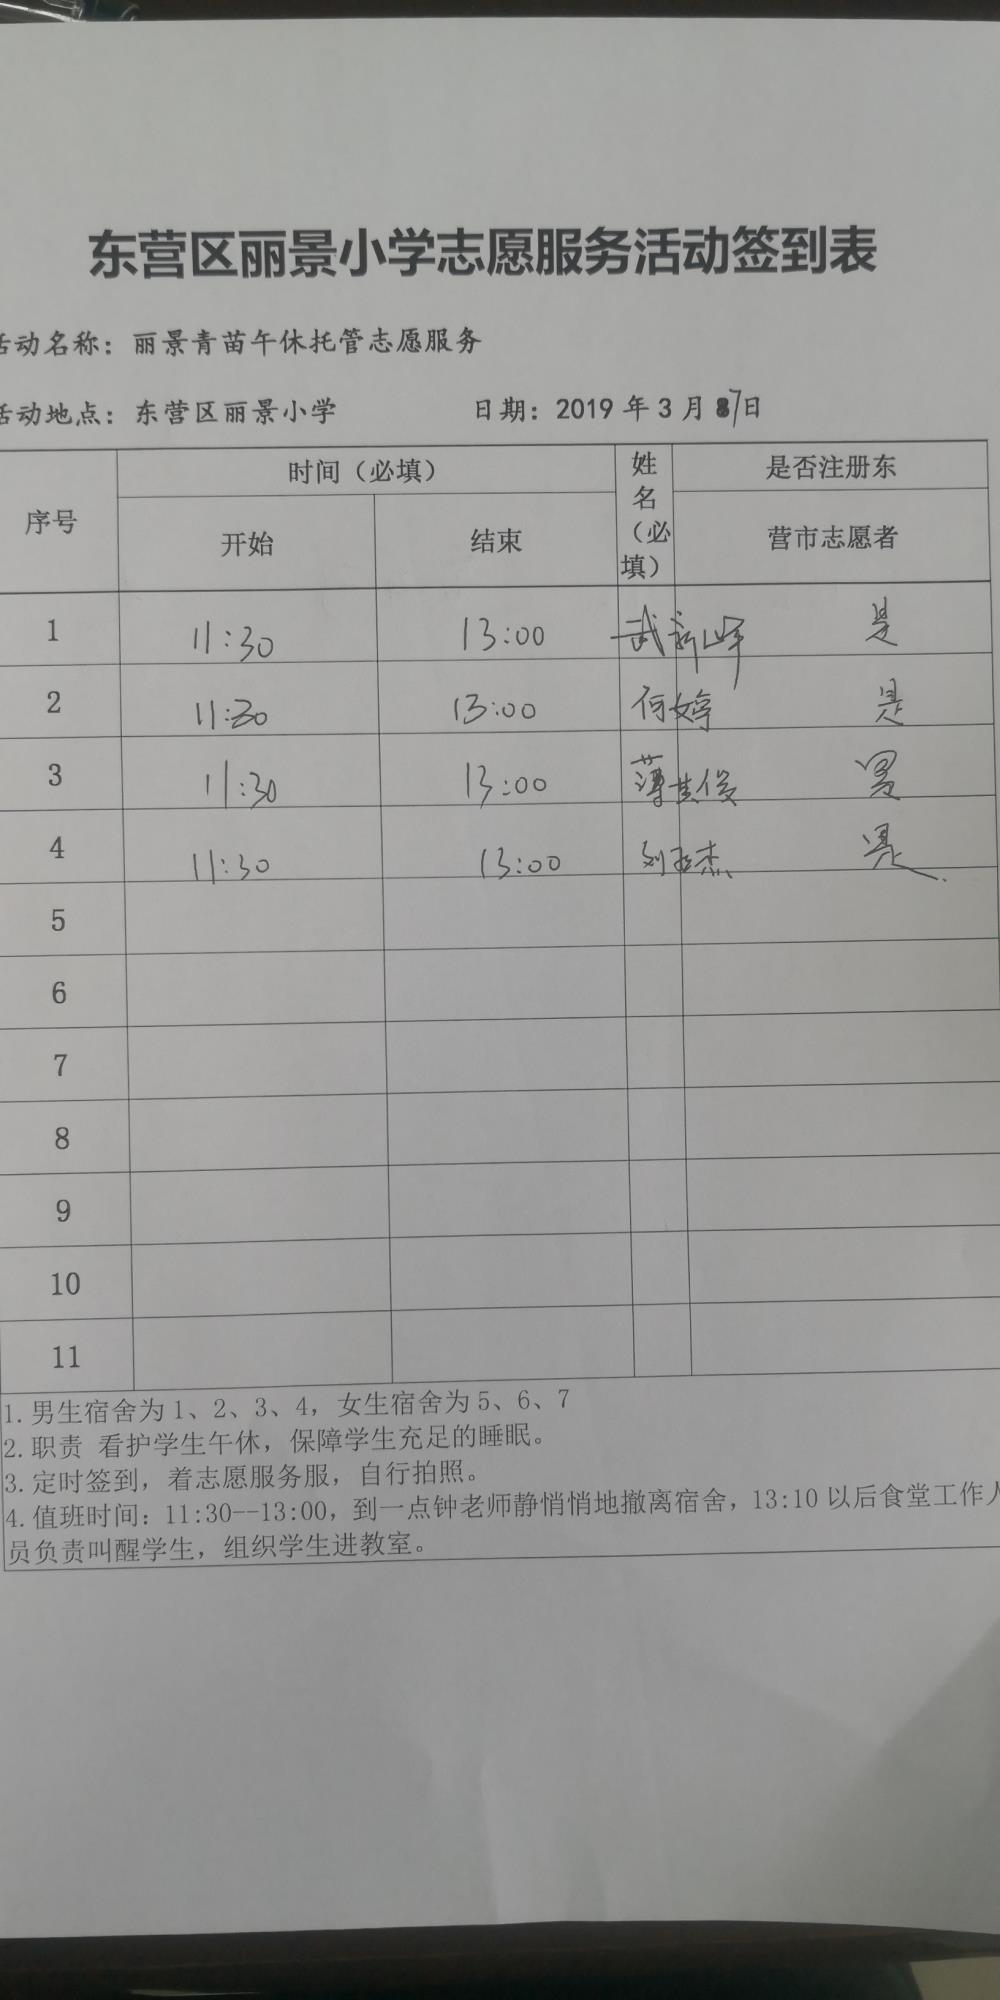 东营区丽景小学志愿服务活动签到表
活动名称：丽景青苗午休托管志愿服务
活动地点：东营区丽景小学 日期：2019 年 3 月 7日
序号 时间（必填） 姓名（必填） 是否注册东营市志愿者
开始 结束
1 11:30 13:00 武新峰 是
2 11:30 13:00 何婷 是
3 11:30 13:00 薄其俊 是
4 11:30 13:00 刘杰 是
5
6
7
8
9
10
11
1.男生宿舍为 1、2、3、4，女生宿舍为 5、6、7
2.职责 看护学生午休，保障学生充足的睡眠。
3.定时签到，着志愿服务服，自行拍照。
4.值班时间：11:30--13:00，到一点钟老师静悄悄地撤离宿舍，13:10 以后食堂工作人
员负责叫醒学生，组织学生进教室。